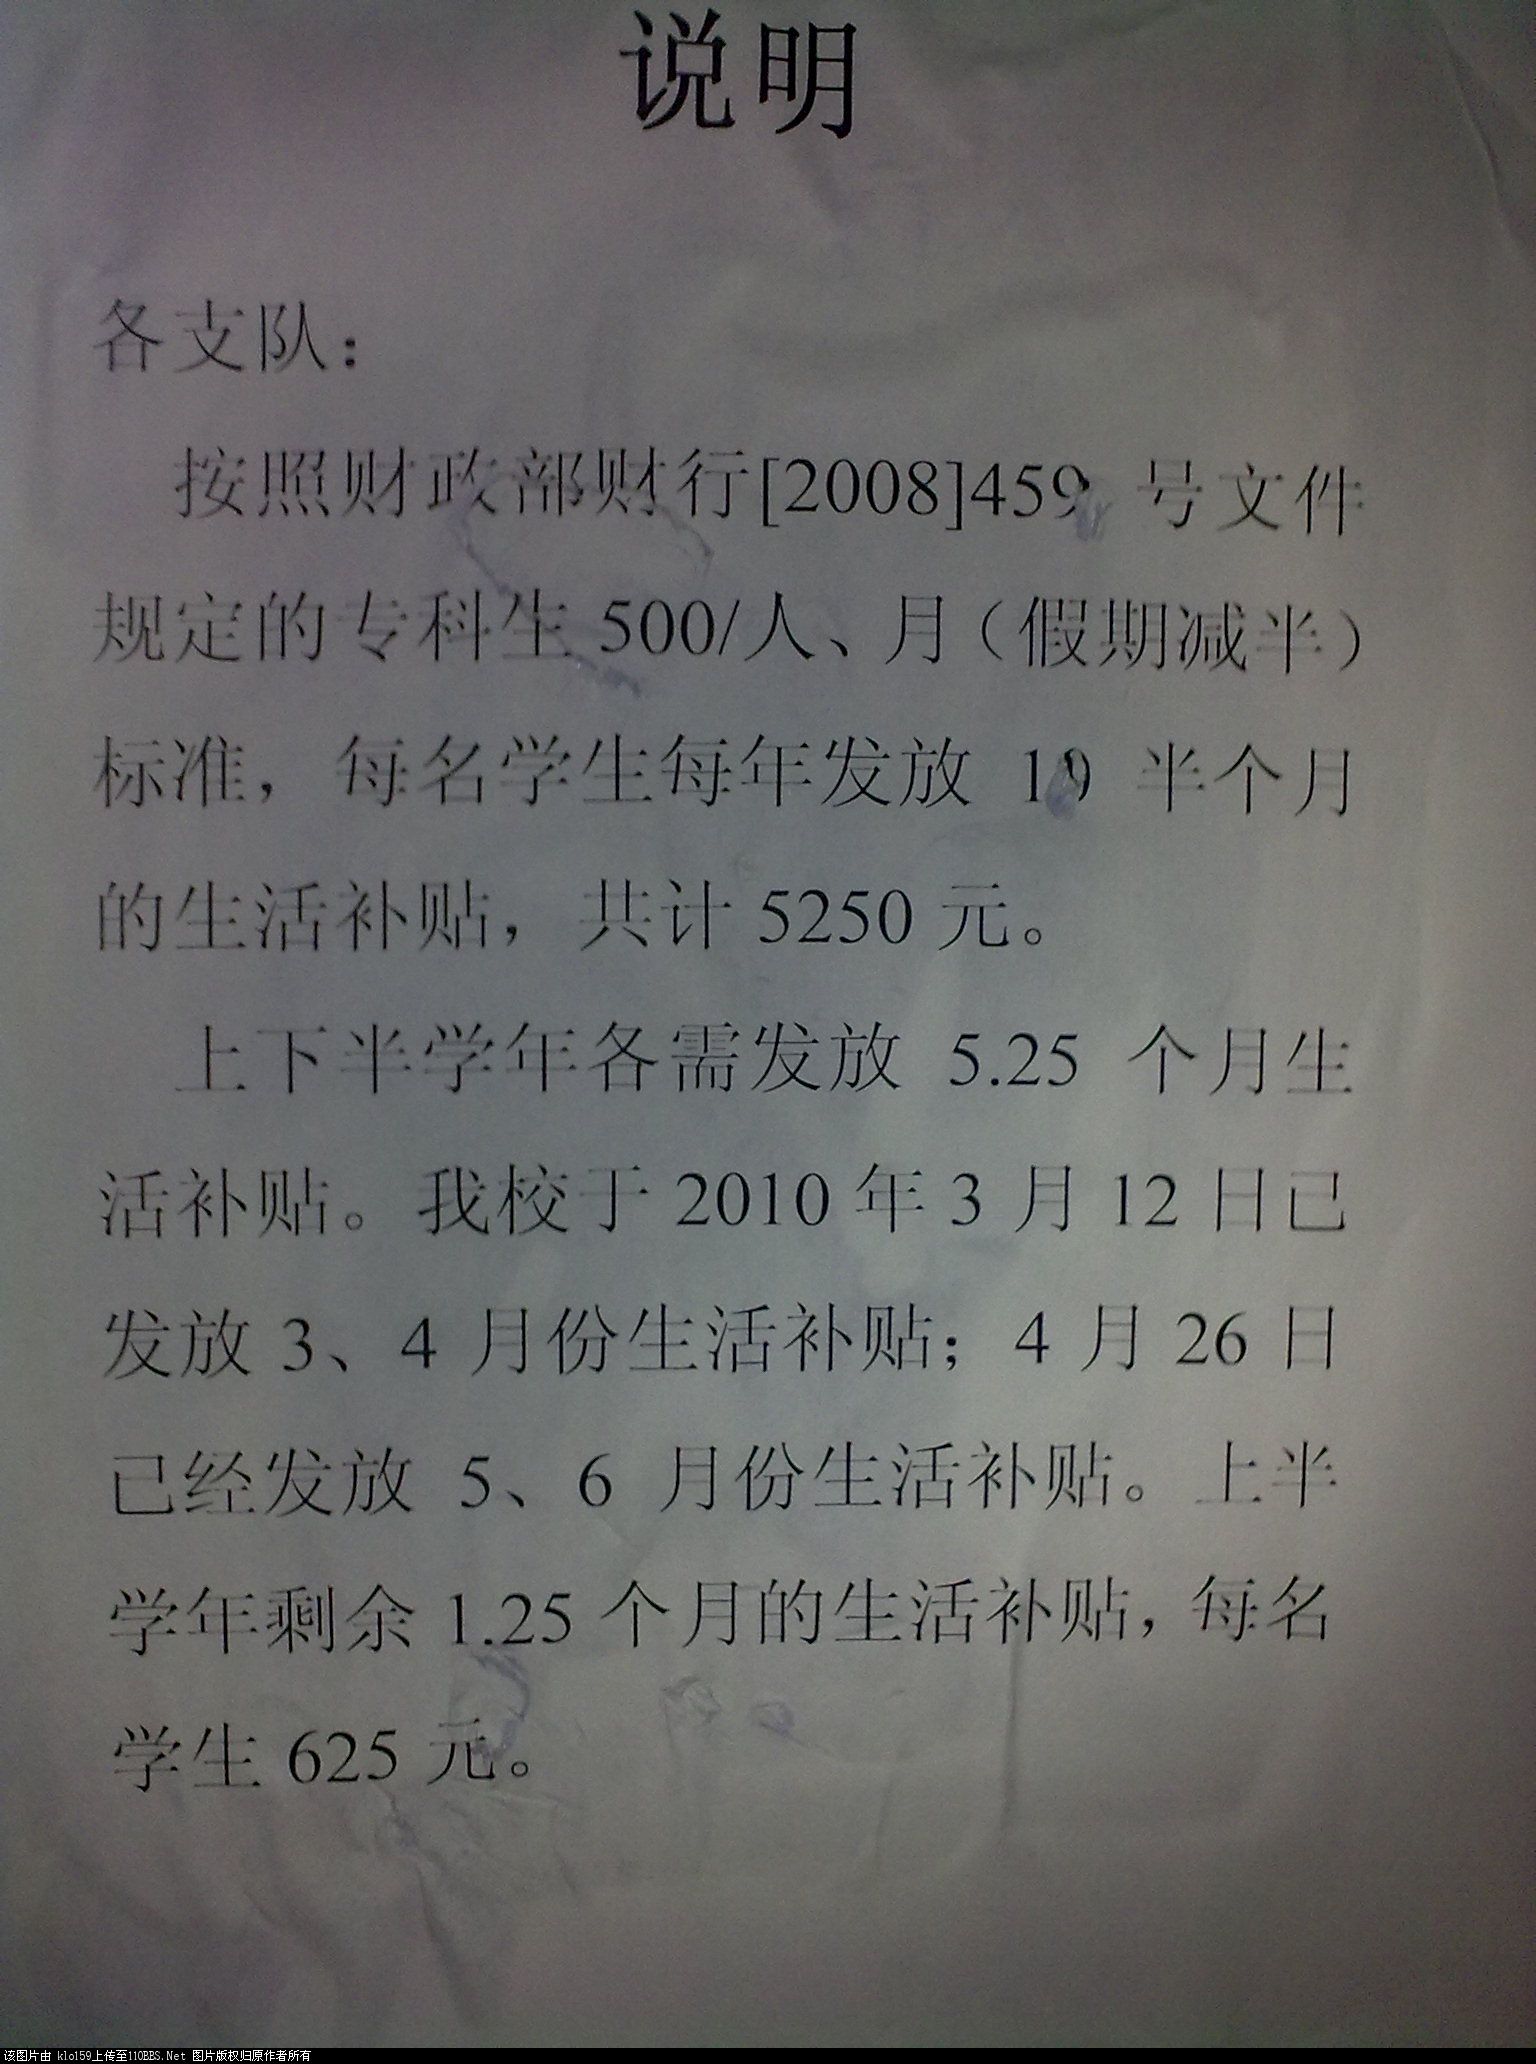 说明
各支队：
按照财政部财行[2008]459 号文件
规定的专科生 500/人、月（假期减半）
标准，每名学生每年发放 10 半个月
的生活补贴，共计 5250 元。
上下半学年各需发放 5.25 个月生
活补贴。我校于 2010 年 3 月 12 日已
发放 3、4 月份生活补贴；4 月 26 日
已经发放 5、6 月份生活补贴。上半
学年剩余 1.25 个月的生活补贴，每名
学生 625 元。
该图片由 klo159上传至110BBS.Net 图片版权归原作者所有